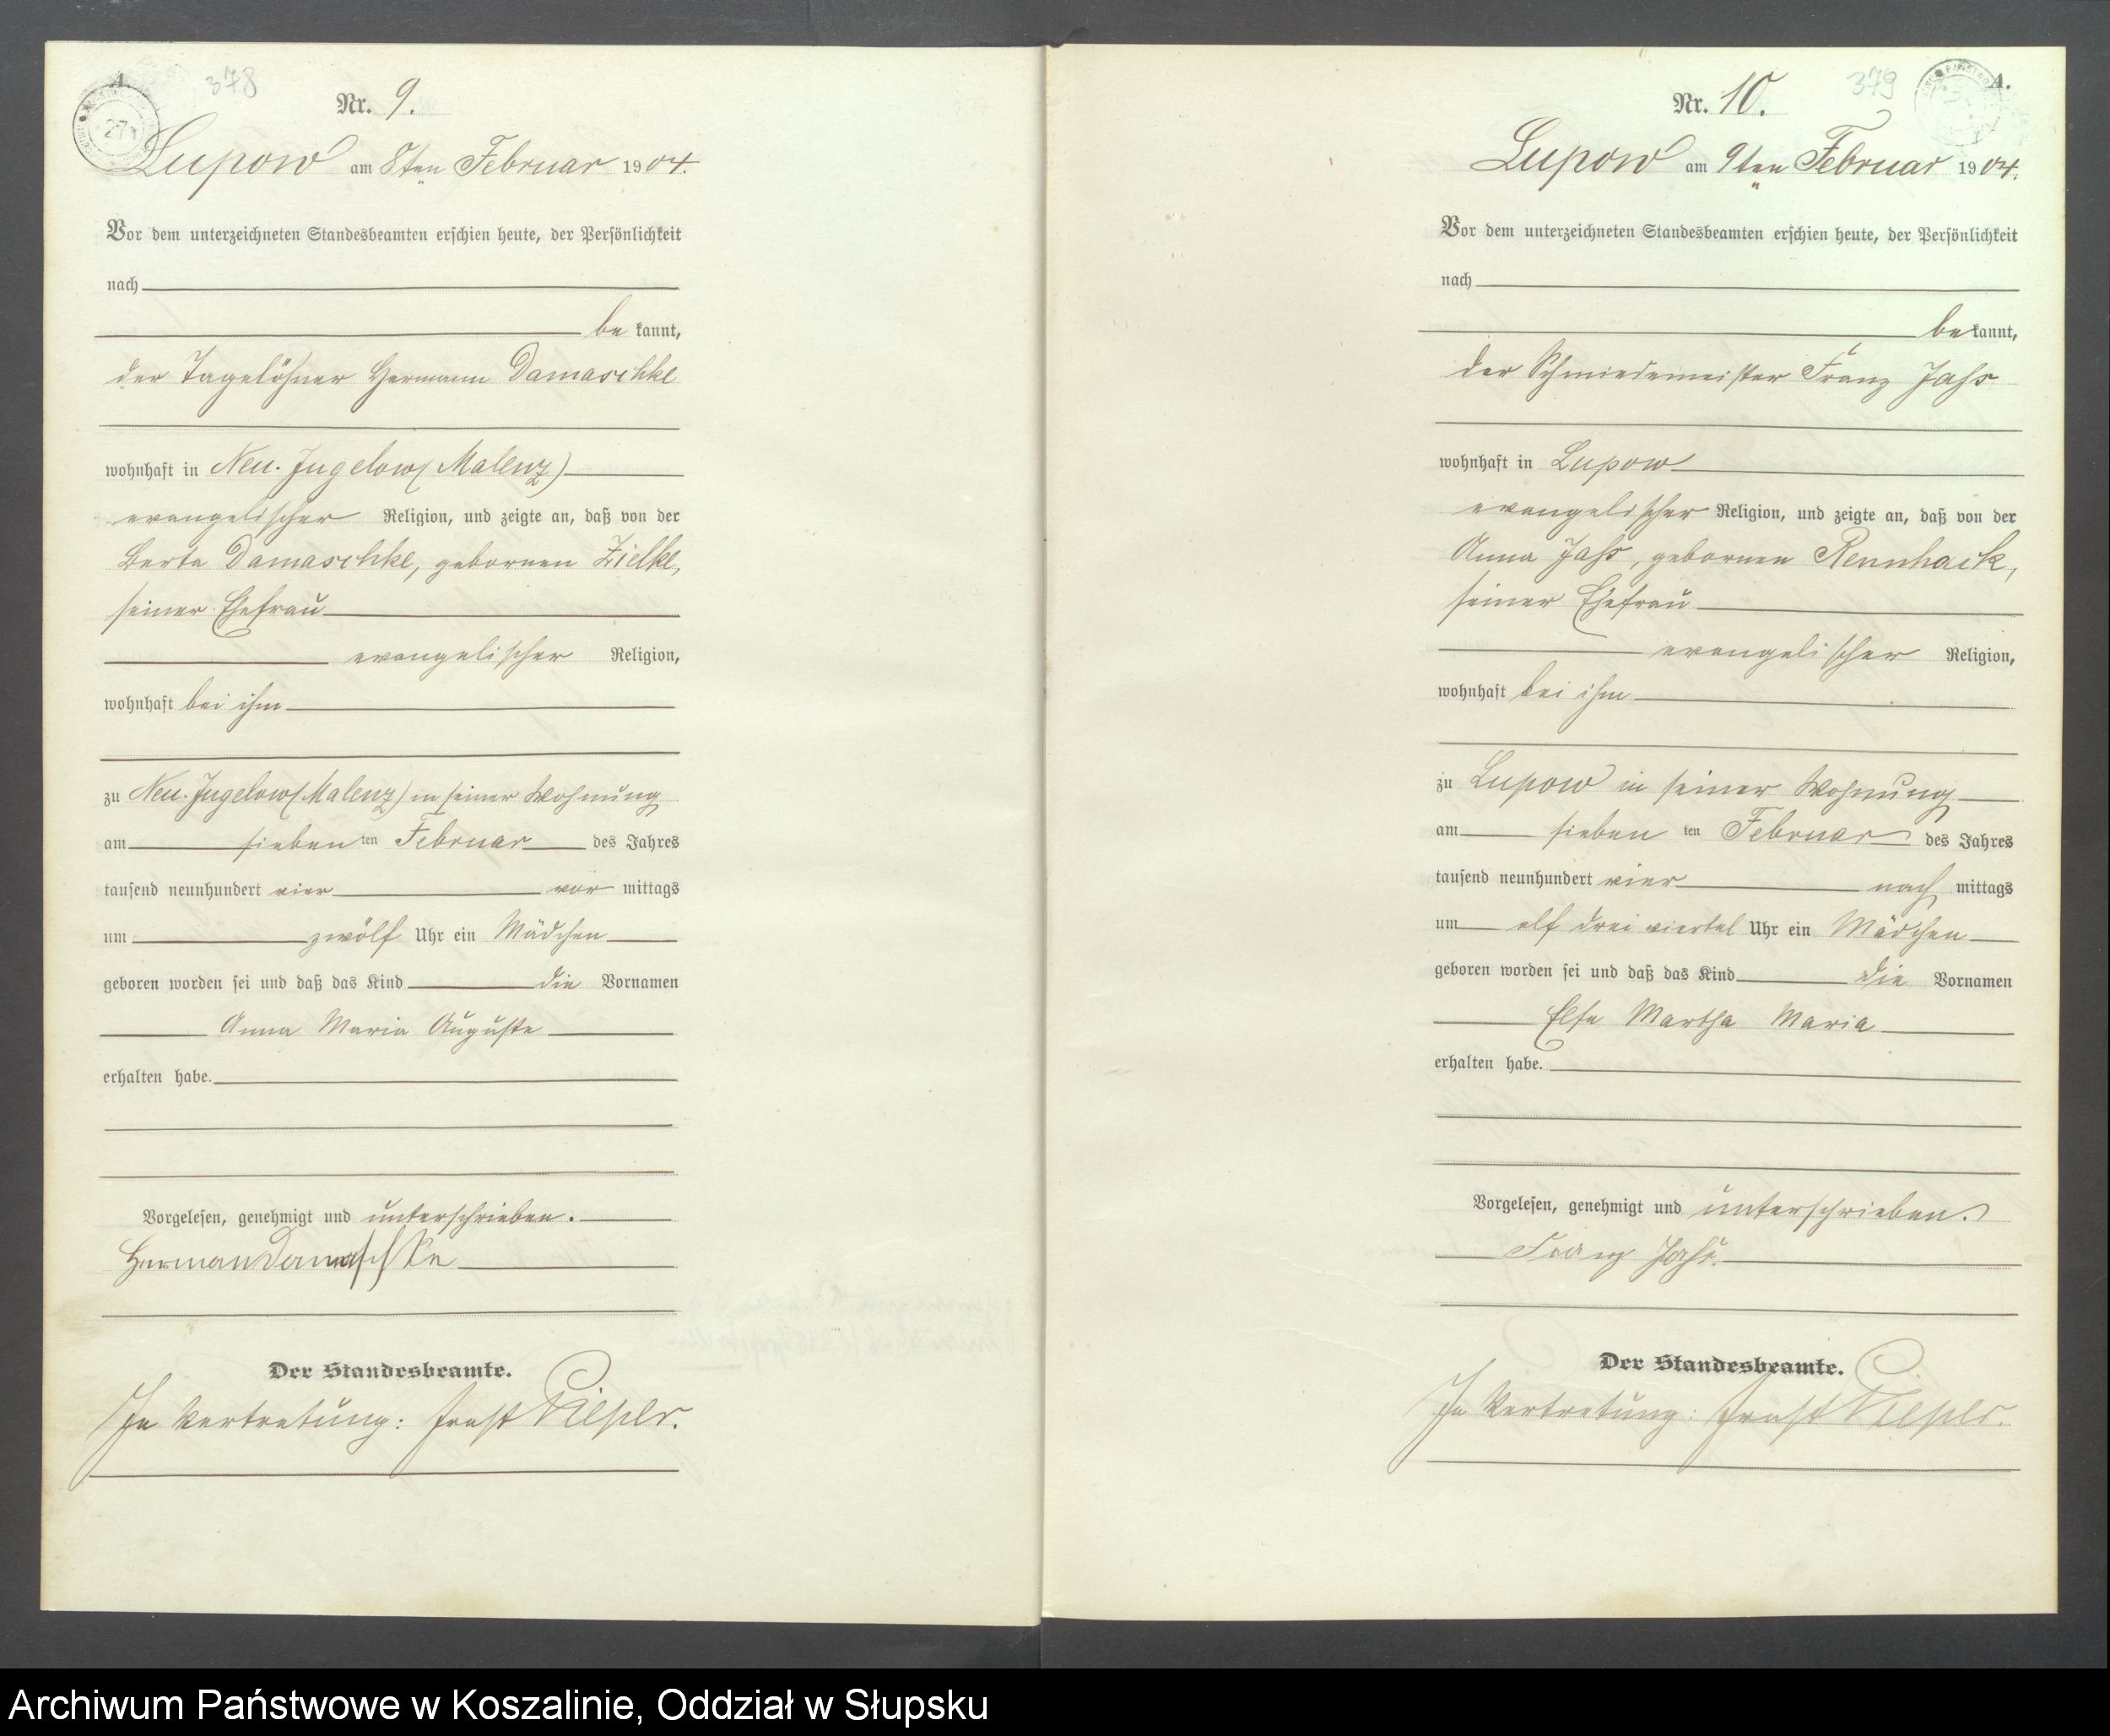 A.
378
Nr. 9.
Lupow am 8ten Februar 1904.
Vor dem unterzeichneten Standesbeamten erschien heute, der Persönlichkeit
nach
be kannt,
der Tagelöhner Hermann Damaschke
wohnhaft in Neu-Jugelow (Malenz)
evangelischer Religion, und zeigte an, daß von der
Berta Damaschke, gebornen Zielke,
seiner Ehefrau
evangelischer Religion,
wohnhaft bei ihm
zu Neu-Jugelow (Malenz) in seiner Wohnung
am sieben ten Februar des Jahres
tausend neunhundert vier vor mittags
um zwölf Uhr ein Mädchen
geboren worden sei und daß das Kind die Vornamen
Anna Maria Auguste
erhalten habe.
Vorgelesen, genehmigt und unterschrieben.
Herman Damaschke
Der Standesbeamte.
In Vertretung: Ernst
379
A.
Nr. 10.
Lupow am 9ten Februar 1904.
Vor dem unterzeichneten Standesbeamten erschien heute, der Persönlichkeit
nach
be kannt,
der Schmiedemeister Franz Jahr
wohnhaft in Lupow
evangelischer Religion, und zeigte an, daß von der
Anna Jahr, gebornen Rennhack,
seiner Ehefrau
evangelischer Religion,
wohnhaft bei ihm
zu Lupow in seiner Wohnung
am sieben ten Februar des Jahres
tausend neunhundert vier nach mittags
um elf drei viertel Uhr ein Mädchen
geboren worden sei und daß das Kind die Vornamen
Else Martha Maria
erhalten habe.
Vorgelesen, genehmigt und unterschrieben.
Franz Jahr.
Der Standesbeamte.
In Vertretung: Ernst
Archiwum Państwowe w Koszalinie, Oddział w Słupsku